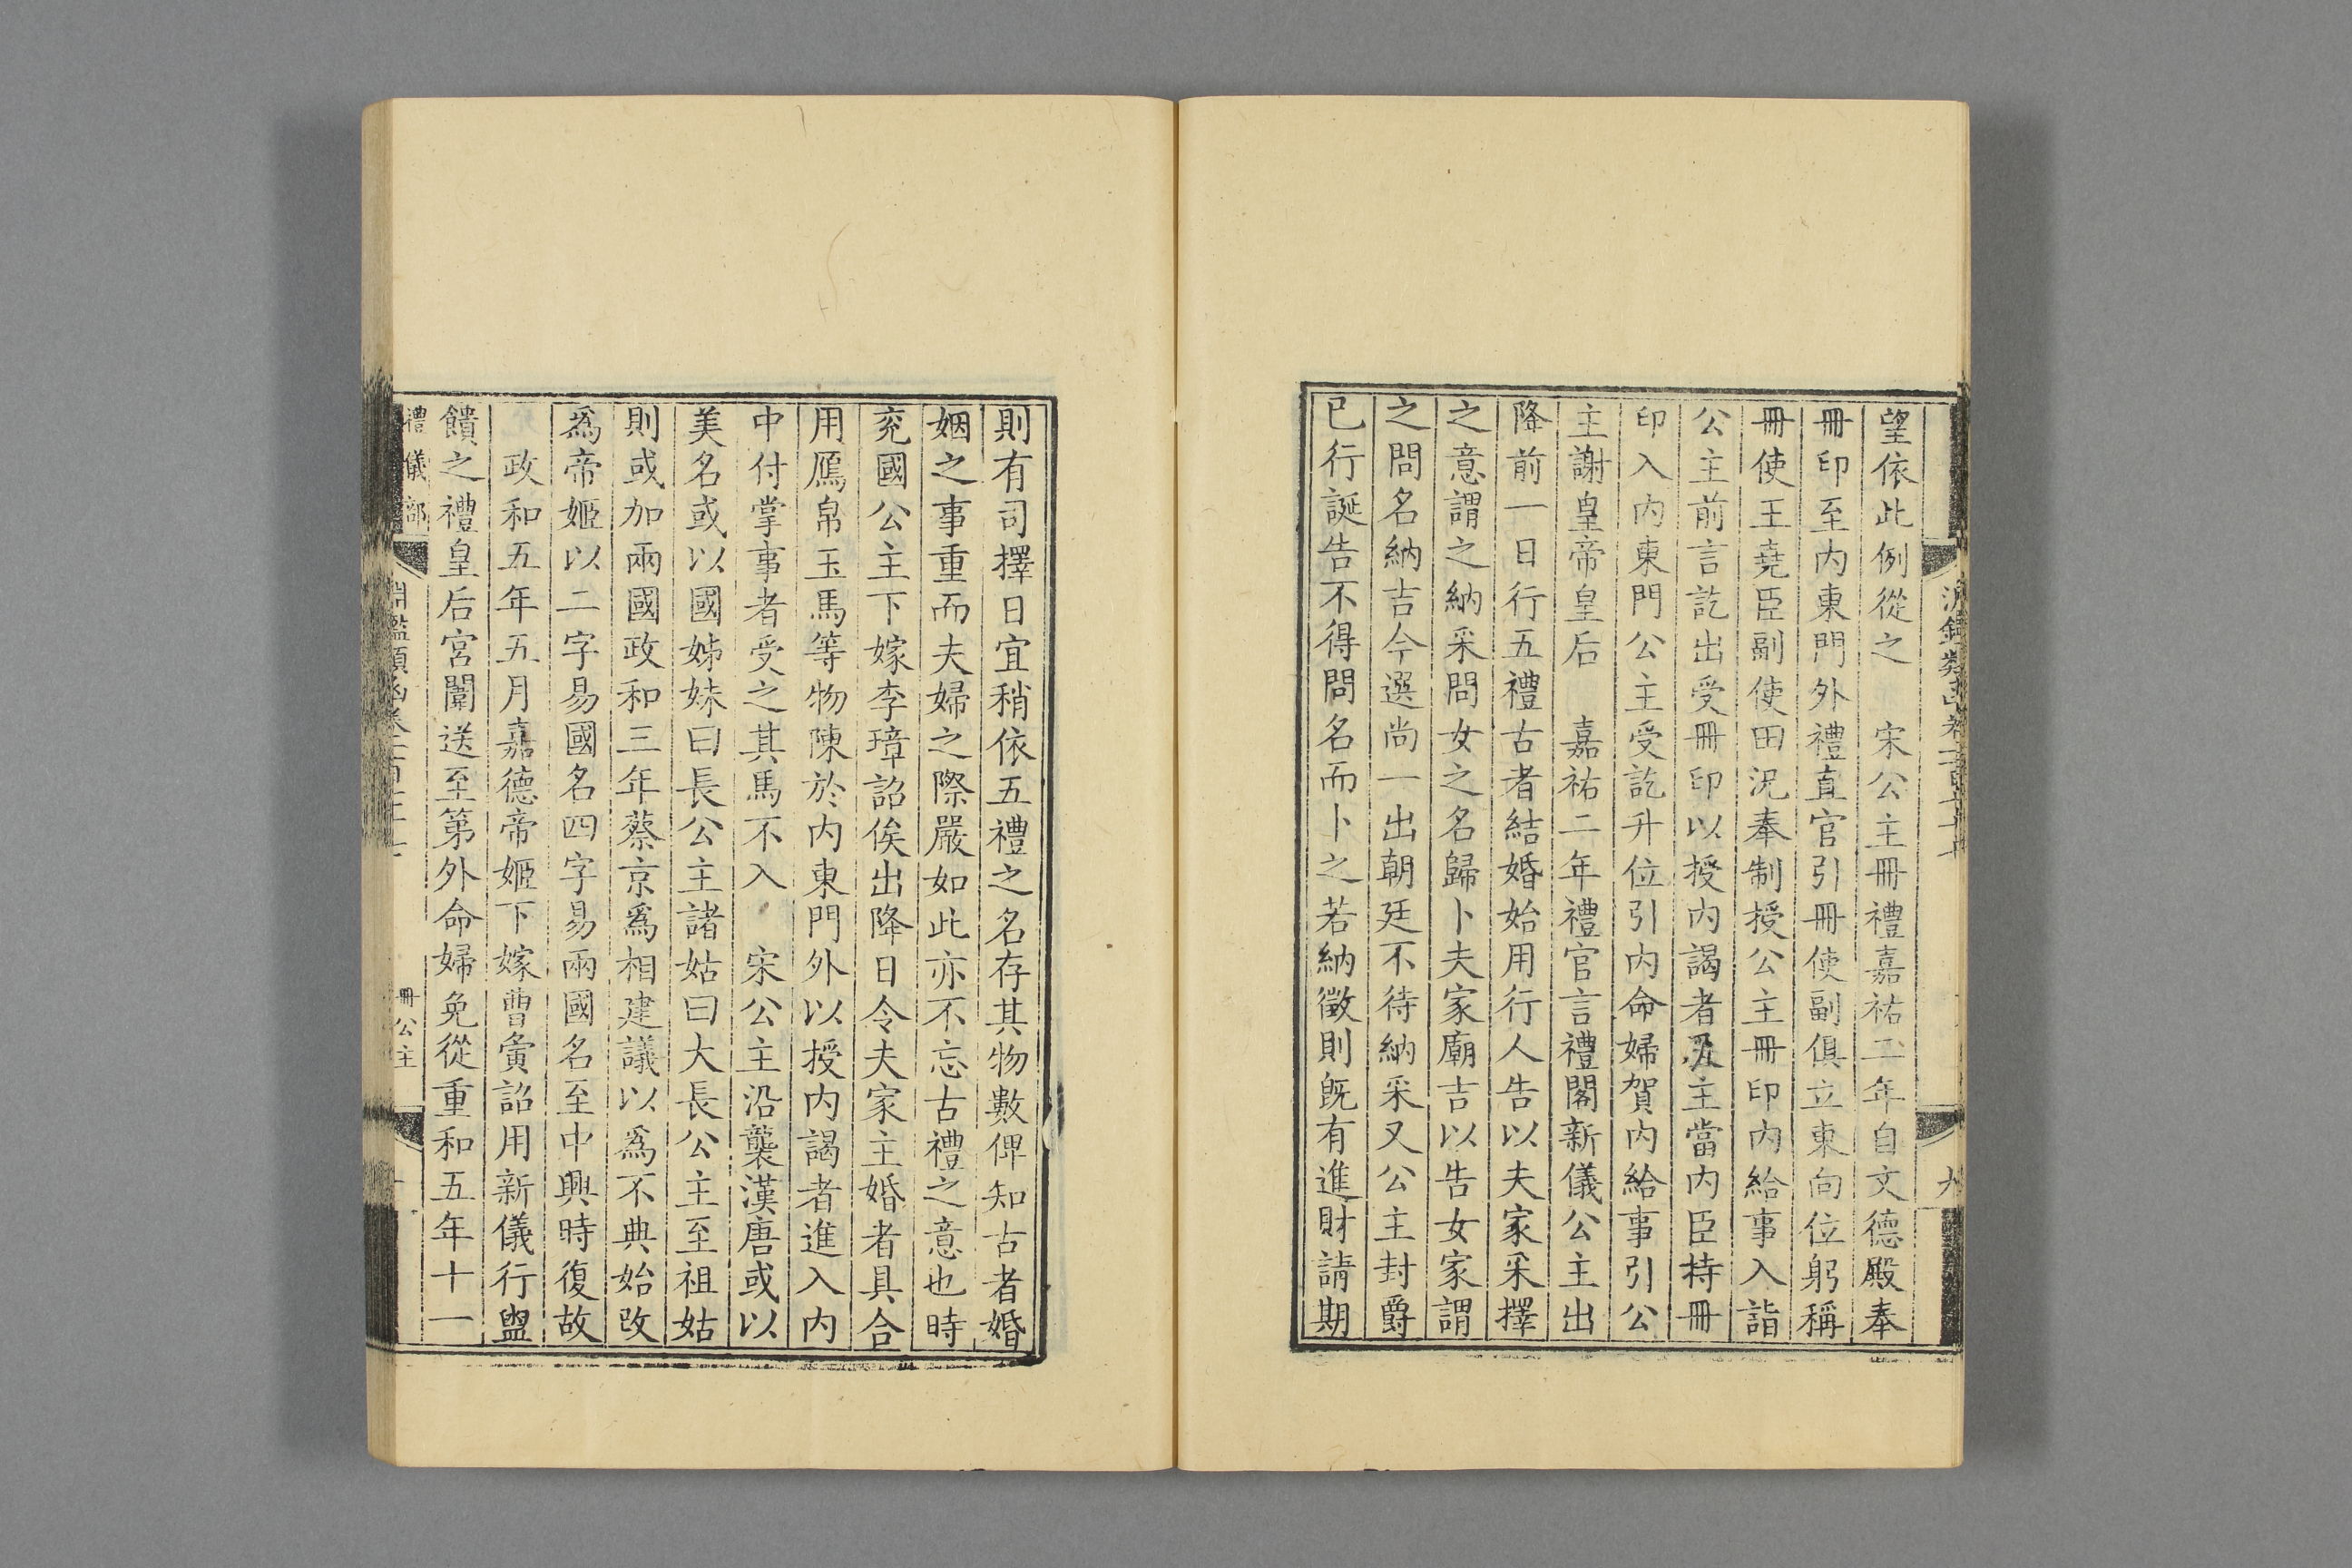 望依此例從之　宋公主冊禮嘉祐二年自文德殿奉
冊印至内東門外禮直官引冊使副俱立東向位躬稱
冊使王堯臣副使田況奉制授公主冊印内給事入詣
公主前言訖出受冊印以授内謁者及主當内臣持冊
印入内東門公主受訖升位引内命婦賀内給事引公
主謝皇帝皇后　嘉祐二年禮官言禮閣新儀公主出
降前一日行五禮古者結婚始用行人告以夫家采擇
之意謂之納采問女之名歸卜夫家廟吉以告女家謂
之問名納吉今選尚一出朝廷不待納采又公主封爵
已行誕告不得問名而卜之若納徵則旣有進財請期
則有司擇日宜稍依五禮之名存其物數俾知古者婚
姻之事重而夫婦之際嚴如此亦不忘古禮之意也時
兖國公主下嫁李瑋詔俟出降日令夫家主婚者具合
用鴈帛玉馬等物陳於内東門外以授内謁者進入内
中付掌事者受之其馬不入　宋公主沿襲漢唐或以
美名或以國姊妹曰長公主諸姑曰大長公主至祖姑
則或加兩國政和三年蔡京爲相建議以爲不典始改
爲帝姬以二字易國名四字易兩國名至中興時復故
政和五年五月嘉德帝姬下嫁曹夤詔用新儀行盥
饋之禮皇后宮闈送至第外命婦免從重和五年十一
禮儀部
冊公主